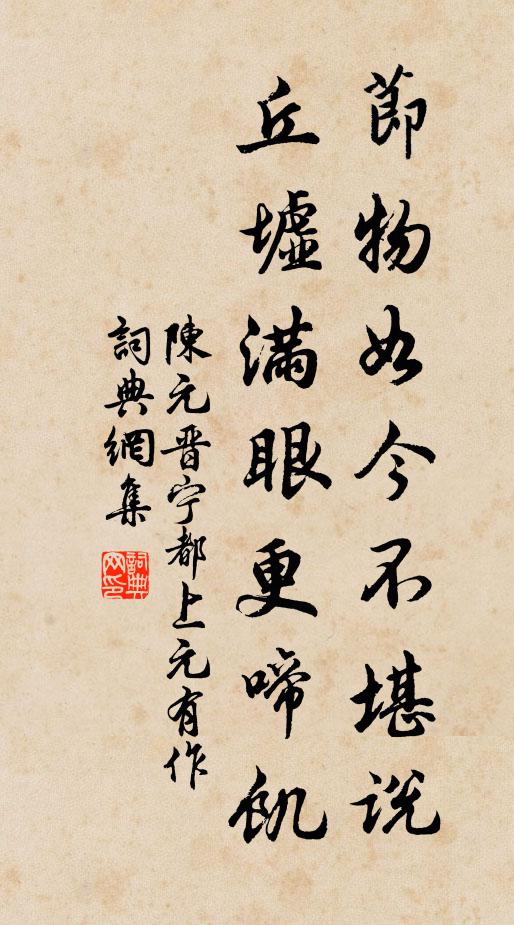 節物如今不堪說
丘墟滿眼更啼飢
陳元晋宁都上元有作
詞典網集
詞典网印